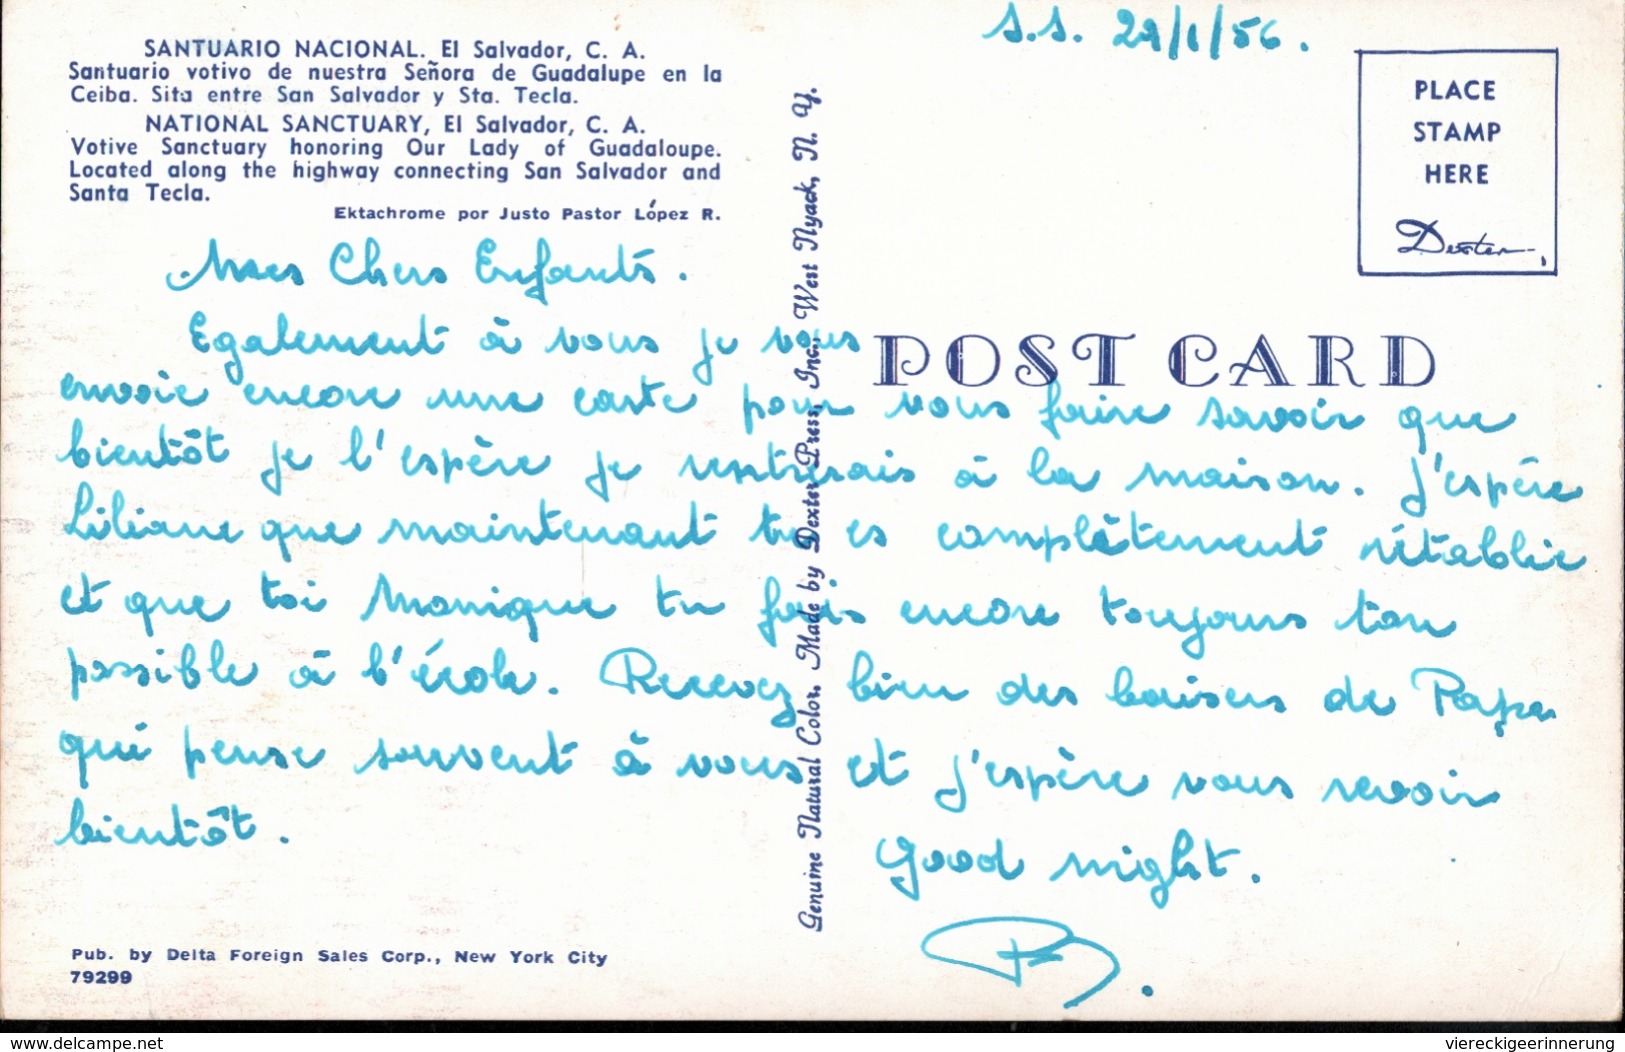 SANTUARIO NACIONAL. El Salvador, C. A.
Santuario votivo de nuestra Señora de Guadalupe en la
Ceiba. Sita entre San Salvador y Sta. Tecla.
NATIONAL SANCTUARY, El Salvador, C. A.
Votive Sanctuary honoring Our Lady of Guadaloupe.
Located along the highway connecting San Salvador and
Santa Tecla.
Ektachrome por Justo Pastor López R.
S.S. 29/1/56.
PLACE
STAMP
HERE
Dexter
POST CARD
Genuine Natural Color. Made by Dexter Press, Inc., West Nyack, N. Y.
Mes Chers Enfants.
Egalement à vous je vous
envoie encore une carte pour vous faire savoir que
bientôt je l'espère je rentrerais à la maison. J'espère
Liliane que maintenant tu es complètement rétablie
et que toi Monique tu fais encore toujours ton
possible à l'école. Recevez bien des baisers de Papa
qui pense souvent à vous et j'espère vous revoir
bientôt.
Good night.
Pub. by Delta Foreign Sales Corp., New York City
79299
delcampe.net
viereckigeerinnerung